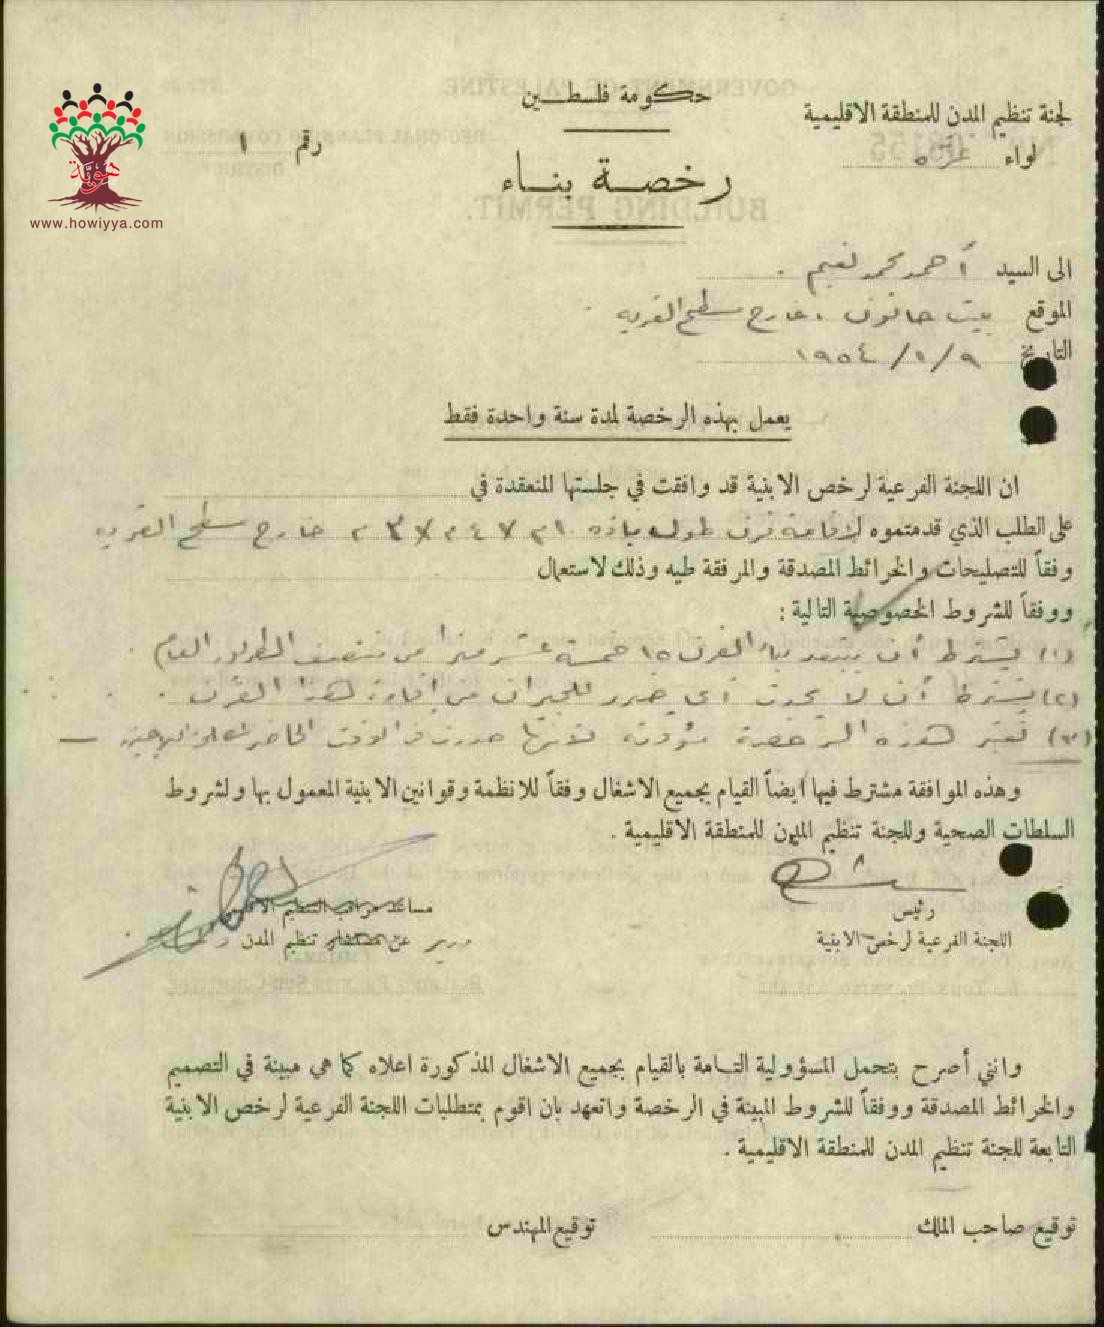 حكومة فلسطين
لجنة تنظيم المدن للمنطقة الاقليمية
لواء غزة
رقم ١
هوية
www.howiyya.com
رخصة بناء
الى السيد أحمد محمد نعيم
الموقع بيت حانون . خارج سطح القرية
التاريخ ٩/ ١/ ١٩٥٤
يعمل بهذه الرخصة لمدة سنة واحدة فقط
ان اللجنة الفرعية لرخص الابنية قد وافقت في جلستها المنعقدة في
على الطلب الذي قدمتموه لاقامة فرن طوله خارج سطح القرية
وفقاً للتصليحات والخرائط المصدقة والمرفقة طيه وذلك لاستعمال
ووفقاً للشروط الخصوصية التالية :
(١) يشترط أن يبعد بناء الفرن ١٥ خمسة عشر متر من منتصف الطريق العام .
(٢) يشترط أن لا يحدث أي ضرر للجيران من اقامة هذا الفرن .
(٣) تعتبر هذه الرخصة مؤقتة لانها صدرت في الوقت الحاضر
وهذه الموافقة مشترط فيها ايضاً القيام بجميع الاشغال وفقاً للانظمة وقوانين الابنية المعمول بها ولشروط
السلطات الصحية وللجنة تنظيم المدن للمنطقة الاقليمية .
رئيس
اللجنة الفرعية لرخص الابنية
مساعد مراقب التنظيم
مدير عن مستشار تنظيم المدن
وانني أصرح بتحمل المسؤولية التامة بالقيام بجميع الاشغال المذكورة اعلاه كما هي مبينة في التصميم
والخرائط المصدقة ووفقاً للشروط المبينة في الرخصة واتعهد بان اقوم بمتطلبات اللجنة الفرعية لرخص الابنية
التابعة للجنة تنظيم المدن للمنطقة الاقليمية .
توقيع صاحب الملك
توقيع المهندس